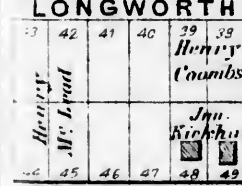 LONGWORTH
43 42 41 40 39 38
Henry
Coombs
Henry
Mc Lead
Jno.
44 45 46 47 48 49